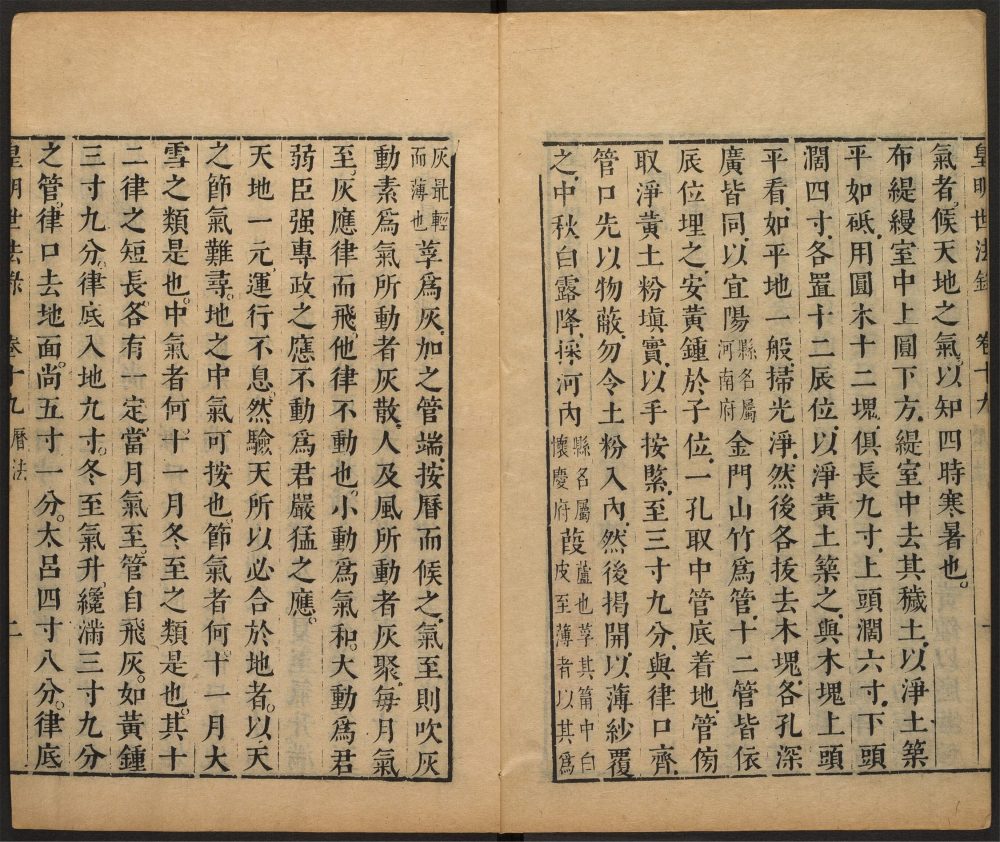 皇明世法錄 卷十九 一
氣者。候天地之氣。以知四時寒暑也。
布緹縵室中上圓下方。緹室中去其穢土。以淨土築
平如砥。用圓木十二塊。俱長九寸。上頭濶六寸。下頭
濶四寸。各置十二辰位。以淨黃土築之。與木塊上頭
平看。如平地一般。掃光淨。然後各拔去木塊。各孔深
廣皆同。以宜陽縣名屬河南府金門山竹爲管。十二管皆依
辰位埋之。安黃鍾於子位。一孔取中管底着地。管傍
取淨黃土粉塡實。以手按緊。至三寸九分。與律口齊。
管口先以物蔽。勿令土粉入內。然後揭開。以薄紗覆
之。中秋白露降。採河內縣名屬懷慶府葭蘆也莩其筩中白皮至薄者以其爲
灰最輕而薄也莩爲灰。加之管端。按曆而候之。氣至則吹灰
動素。爲氣所動者灰散。人及風所動者灰聚。每月氣
至。灰應律而飛。他律不動也。小動爲氣和。大動爲君
弱臣强專政之應。不動爲君嚴猛之應。
天地一元。運行不息。然驗天所以必合於地者。以天
之節氣難尋。地之中氣可按也。節氣者何。十一月大
雪之類是也。中氣者何。十一月冬至之類是也。其十
二律之短長。各有一定。當月氣至。管自飛灰。如黃鍾
三寸九分。律底入地九寸。冬至氣升。纔滿三寸九分
之管。律口去地面。尚五寸一分。太呂四寸八分。律底
皇明世法錄 卷十九 曆法 二